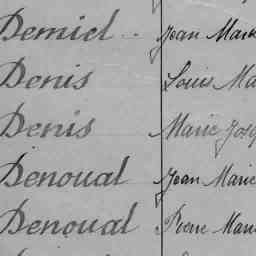 Demiel Jean Marie
Denis Louis Ma
Denis Marie Jose
Denoual Jean Marie
Denoual Pierre Marie